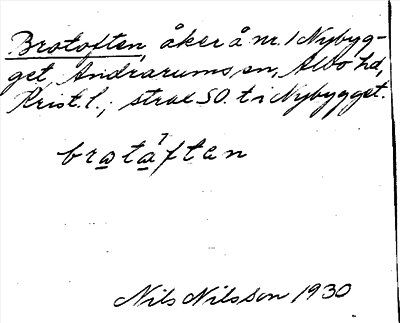 Brotoften, åker å nr. 1 Nybyg-
get, Andrarums sn, Albo hd,
Krist. l.; strax SO. t. i Nybygget.
brotaften
Nils Nilsson 1930